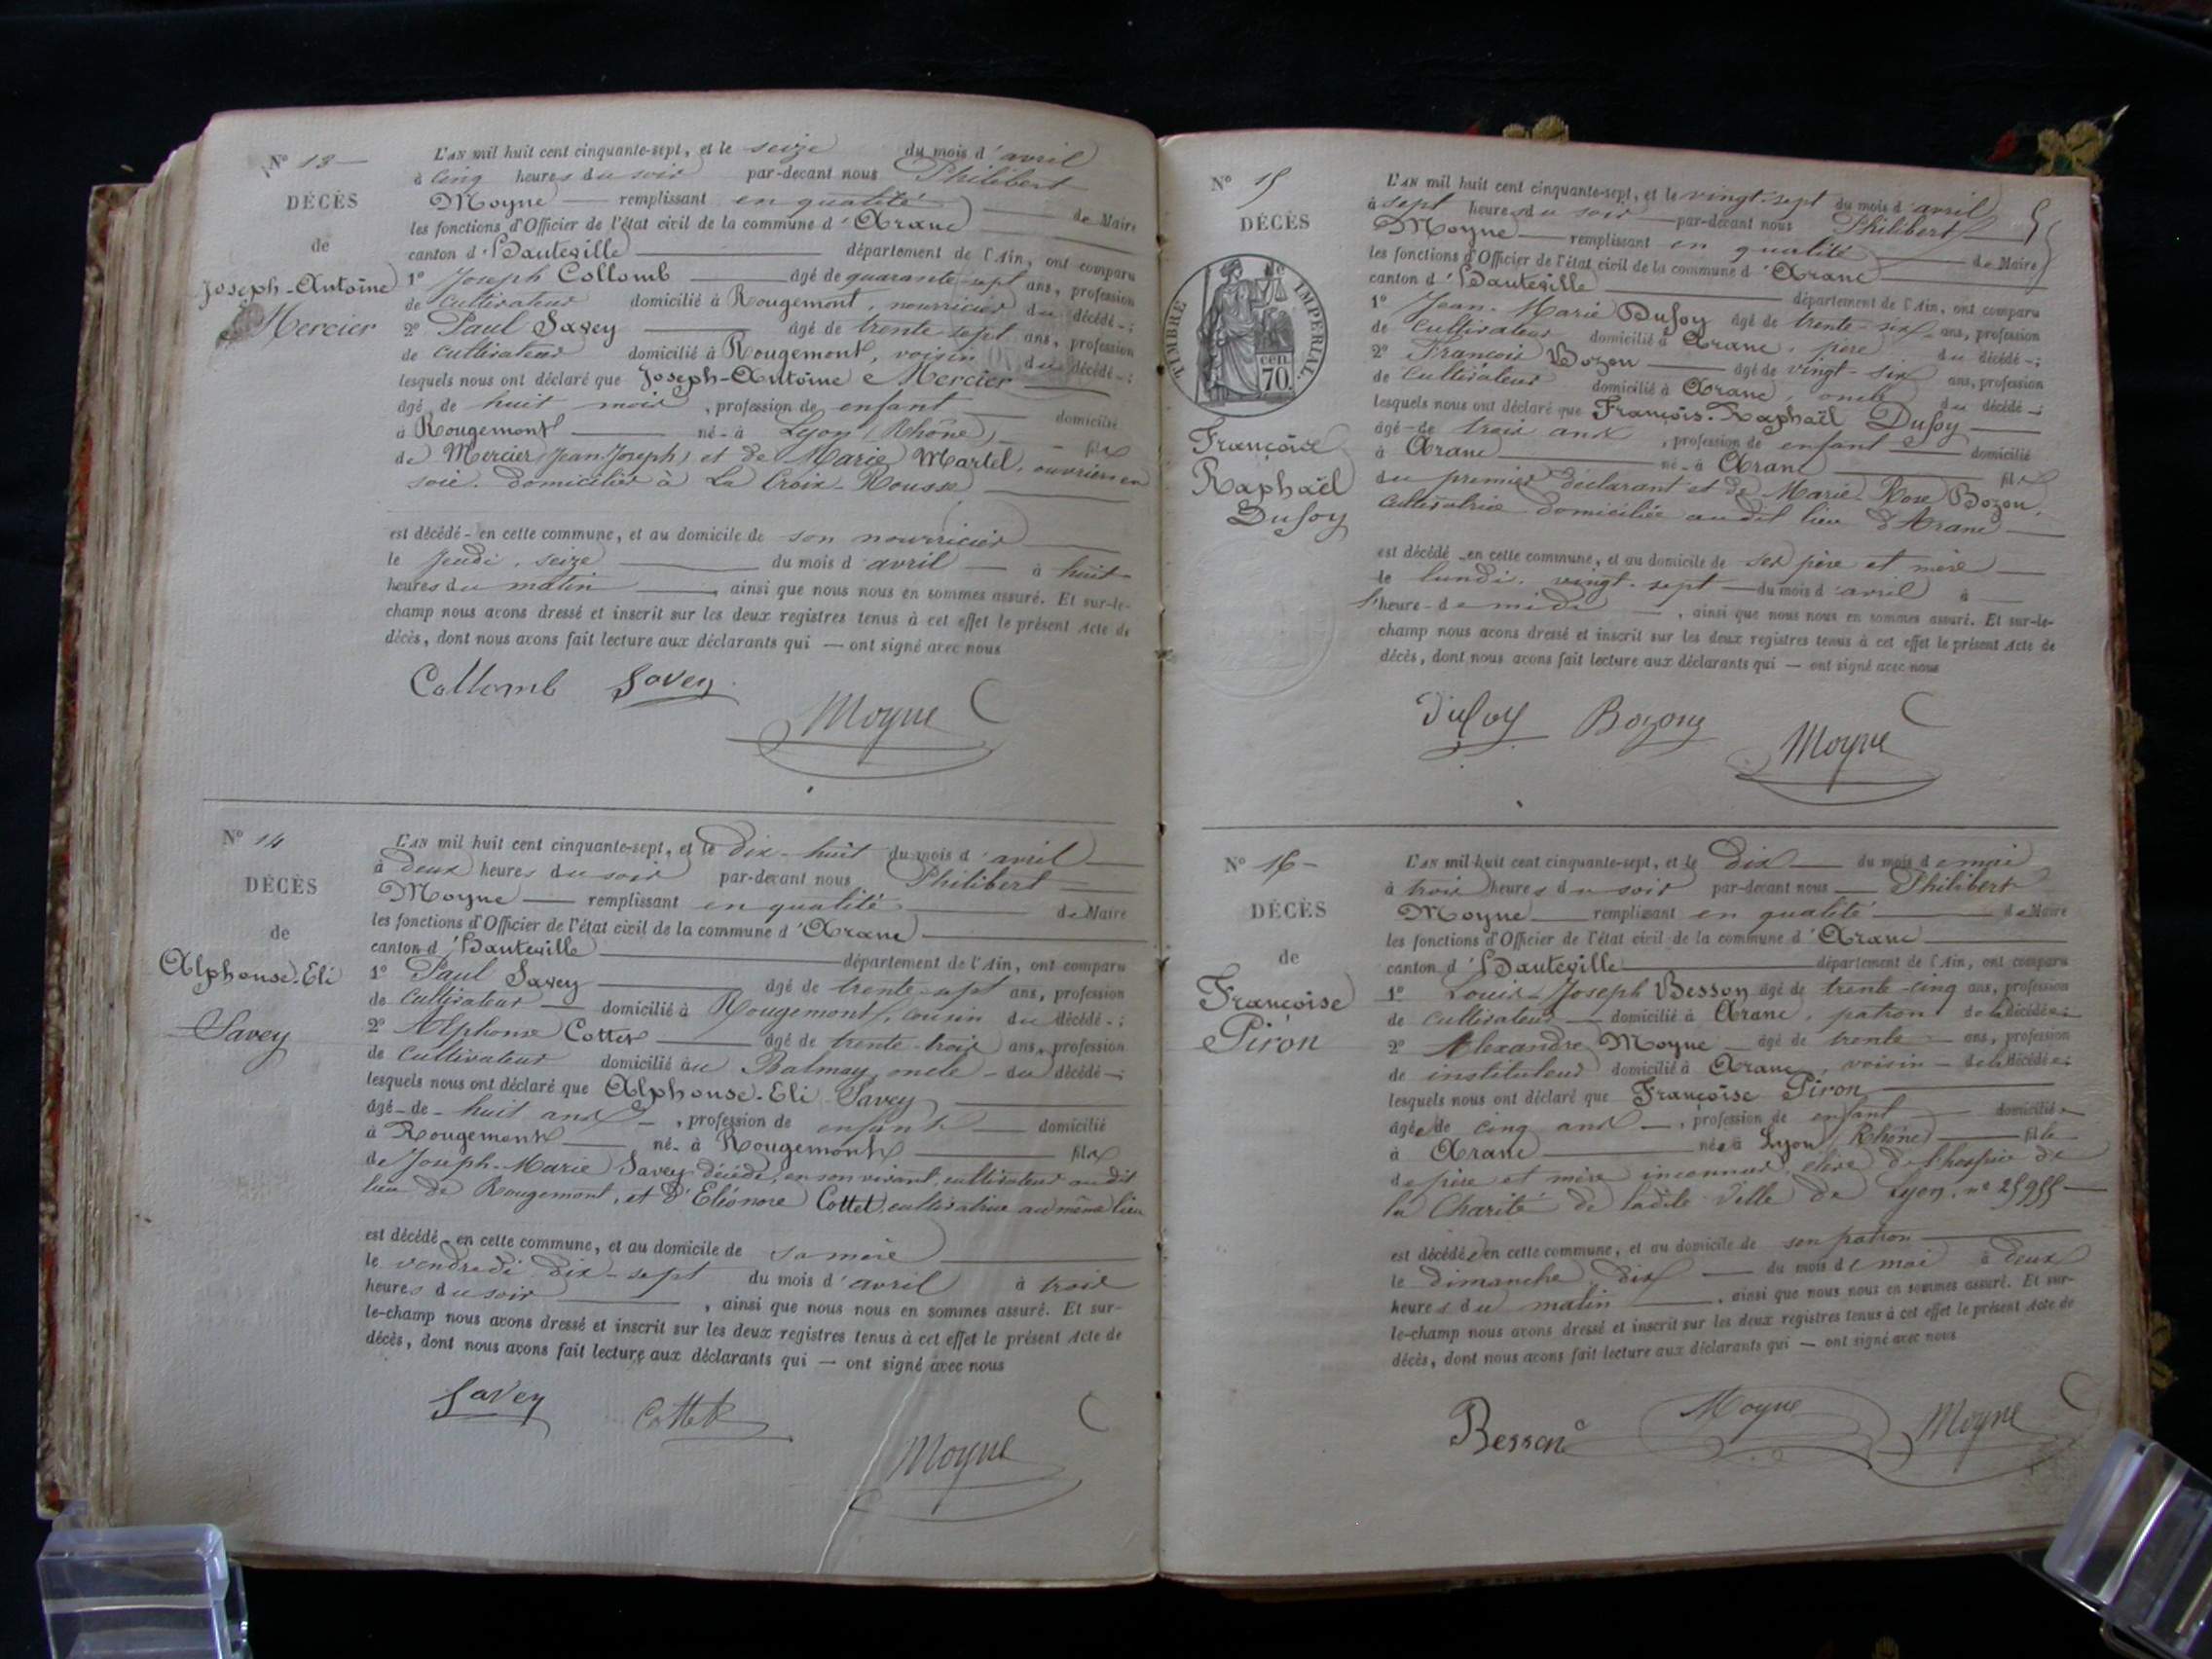 Nº 13 —
DÉCÈS
de
Joseph-Antoine
Mercier
L'AN mil huit cent cinquante-sept, et le seize du mois d'avril
à cinq heures du soir par-devant nous Philibert
Moyne — remplissant en qualité — de Maire
les fonctions d'Officier de l'état civil de la commune d'Aranc
canton d'Hauteville — département de l'Ain, ont comparu
1º Joseph Collomb — âgé de quarante-sept ans, profession
de cultivateur domicilié à Rougemont, nourricier du décédé - ;
2º Paul Savey — âgé de trente-sept ans, profession
de cultivateur domicilié à Rougemont, voisin du décédé - ;
lesquels nous ont déclaré que Joseph-Antoine Mercier —
âgé de huit mois, profession de enfant — domicilié
à Rougemont — né - à Lyon (Rhône) — fils
de Mercier (Jean-Joseph) et de Marie Martel, ouvriers en
soie. domiciliés à La Croix-Rousse —
est décédé - en cette commune, et au domicile de son nourricier —
le jeudi, seize — du mois d'avril — à huit
heures du matin —, ainsi que nous nous en sommes assuré. Et sur-le-
champ nous avons dressé et inscrit sur les deux registres tenus à cet effet le présent Acte de
décès, dont nous avons fait lecture aux déclarants qui — ont signé avec nous
Collomb Savey
Moyne
Nº 14
DÉCÈS
de
Alphonse-Eli
Savey
L'AN mil huit cent cinquante-sept, et le dix-huit du mois d'avril —
à deux heures du soir par-devant nous Philibert —
Moyne — remplissant en qualité — de Maire
les fonctions d'Officier de l'état civil de la commune d'Aranc —
canton d'Hauteville — département de l'Ain, ont comparu
1º Paul Savey — âgé de trente-sept ans, profession
de cultivateur — domicilié à Rougemont, cousin du décédé - ;
2º Alphonse Cottet — âgé de trente-trois ans, profession
de cultivateur domicilié au Balmay, oncle - du décédé - ;
lesquels nous ont déclaré que Alphonse-Eli Savey —
âgé - de - huit ans —, profession de enfant — domicilié
à Rougemont — né - à Rougemont — fils
de Joseph-Marie Savey décédé, en son vivant, cultivateur au dit
lieu de Rougemont, et d'Eléonore Cottet, cultivatrice au même lieu
est décédé - en cette commune, et au domicile de sa mère —
le vendredi dix-sept du mois d'avril à trois
heures du soir —, ainsi que nous nous en sommes assuré. Et sur-
le-champ nous avons dressé et inscrit sur les deux registres tenus à cet effet le présent Acte de
décès, dont nous avons fait lecture aux déclarants qui — ont signé avec nous
Savey Cottet
Moyne
Nº 15
DÉCÈS
de
TIMBRE IMPÉRIAL.
cen.
70.
François
Raphaël
Dufoy
L'AN mil huit cent cinquante-sept, et le vingt-sept du mois d'avril
à sept heures du soir — par-devant nous Philibert —
Moyne — remplissant en qualité — de Maire
les fonctions d'Officier de l'état civil de la commune d'Aranc —
canton d'Hauteville — département de l'Ain, ont comparu
1º Jean-Marie Dufoy âgé de trente-six ans, profession
de cultivateur domicilié à Aranc, père du décédé - ;
2º François Bozon — âgé de vingt-six ans, profession
de cultivateur domicilié à Aranc, oncle du décédé - ;
lesquels nous ont déclaré que François-Raphaël Dufoy —
âgé - de trois ans, profession de enfant — domicilié
à Aranc — né - à Aranc — fils
du premier déclarant et de Marie-Rose Bozon,
cultivatrice domiciliée audit lieu d'Aranc —
est décédé - en cette commune, et au domicile de ses père et mère —
le lundi, vingt-sept — du mois d'avril à —
l'heure - de midi —, ainsi que nous nous en sommes assuré. Et sur-le-
champ nous avons dressé et inscrit sur les deux registres tenus à cet effet le présent Acte de
décès, dont nous avons fait lecture aux déclarants qui — ont signé avec nous
Dufoy Bozon
Moyne
Nº 16 -
DÉCÈS
de
Françoise
Piron
L'AN mil huit cent cinquante-sept, et le dix — du mois de mai
à trois heures du soir par-devant nous — Philibert
Moyne — remplissant en qualité — de Maire
les fonctions d'Officier de l'état civil de la commune d'Aranc —
canton d'Hauteville — département de l'Ain, ont comparu
1º Louis-Joseph Besson âgé de trente-cinq ans, profession
de cultivateur — domicilié à Aranc, patron de la décédée ;
2º Alexandre Moyne — âgé de trente — ans, profession
de instituteur domicilié à Aranc, voisin — de la décédée ;
lesquels nous ont déclaré que Françoise Piron —
âgée de cinq ans —, profession de enfant — domiciliée
à Aranc — née à Lyon (Rhône) — fille
de père et mère inconnus, élève de l'hospice de
la Charité de ladite ville de Lyon, nº 25955 —
est décédée en cette commune, et au domicile de son patron —
le dimanche dix — du mois de mai à deux
heures du matin —, ainsi que nous nous en sommes assuré. Et sur-
le-champ nous avons dressé et inscrit sur les deux registres tenus à cet effet le présent Acte de
décès, dont nous avons fait lecture aux déclarants qui — ont signé avec nous
Besson Moyne Moyne